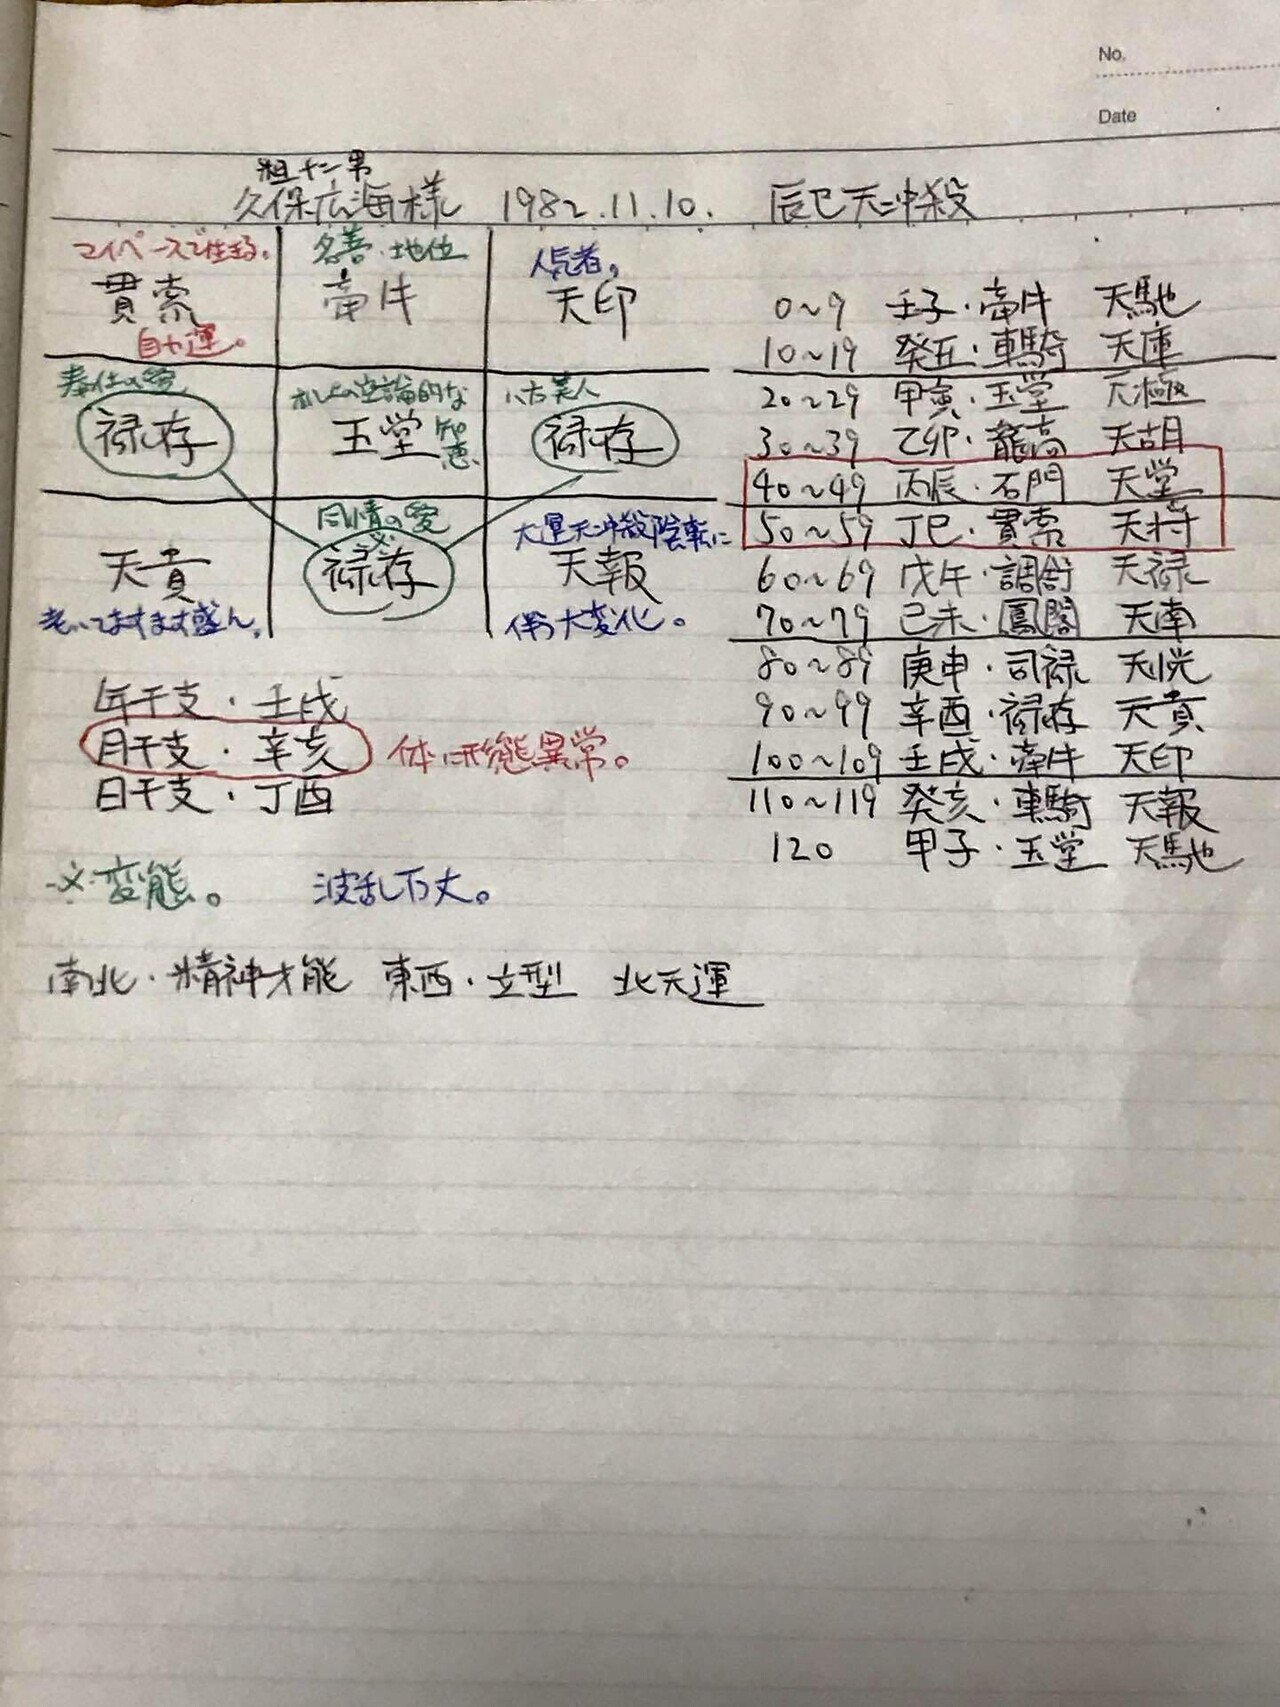 No.
Date
久保広海様 1982.11.10. 辰巳天冲殺
マイペースで生きる。
貫索
自力運。
名誉・地位
牽牛
人気者。
天印
奉仕の愛
禄存
玉堂 知恵
八方美人
禄存
天貴
老いてますます盛ん。
同情の愛
禄存
大運天冲殺陰転に
天報
伴う大変化。
0~9 壬子・牽牛 天馳
10~19 癸丑・車騎 天庫
20~29 甲寅・玉堂 天極
30~39 乙卯・龍高 天胡
40~49 丙辰・石門 天堂
50~59 丁巳・貫索 天将
60~69 戊午・調舒 天禄
70~79 己未・鳳閣 天南
80~89 庚申・司禄 天恍
90~99 辛酉・禄存 天貴
100~109 壬戌・牽牛 天印
110~119 癸亥・車騎 天報
120 甲子・玉堂 天馳
年干支・壬戌
月干支・辛亥 体に形態異常。
日干支・丁酉
変態。 波乱万丈。
南北・精神才能 東西・立型 北天運